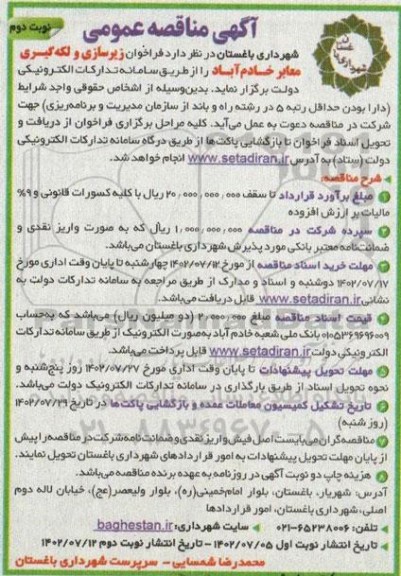 آگهی مناقصه عمومی
نوبت دوم
شهرداری باغستان در نظر دارد فراخوان زیرسازی و لکه گیری
معابر خادم آباد را از طریق سامانه تدارکات الکترونیکی
دولت برگزار نماید. بدین‌وسیله از اشخاص حقوقی واجد شرایط
(دارا بودن حداقل رتبه ۵ در رشته راه و باند از سازمان مدیریت و برنامه‌ریزی) جهت
شرکت در مناقصه دعوت به عمل می‌آید. کلیه مراحل برگزاری فراخوان از دریافت و
تحویل اسناد فراخوان تا بازگشایی پاکت‌ها از طریق درگاه سامانه تدارکات الکترونیکی
دولت (ستاد) به آدرس www.setadiran.ir انجام خواهد شد.
شرح مناقصه:
۱ مبلغ برآورد قرارداد تا سقف ۲۰,۰۰۰,۰۰۰,۰۰۰ ریال با کلیه کسورات قانونی و ۹%
مالیات بر ارزش افزوده
۲ سپرده شرکت در مناقصه ۱,۰۰۰,۰۰۰,۰۰۰ ریال که به صورت واریز نقدی و
ضمانت‌نامه معتبر بانکی مورد پذیرش شهرداری باغستان می‌باشد.
۳ مهلت خرید اسناد مناقصه از مورخ ۱۴۰۲/۰۷/۱۲ چهارشنبه تا پایان وقت اداری مورخ
۱۴۰۲/۰۷/۱۷ دوشنبه و اسناد و مدارک از طریق مراجعه به سامانه تدارکات دولت به
نشانی www.setadiran.ir قابل دریافت می‌باشد.
۴ قیمت اسناد مناقصه مبلغ ۲,۰۰۰,۰۰۰ (دو میلیون ریال) می‌باشد که به‌حساب
۰۱۰۵۳۶۹۶۹۶۰۰۹ بانک ملی شعبه خادم آباد به‌صورت الکترونیک از طریق سامانه تدارکات
الکترونیکی دولت www.setadiran.ir قابل پرداخت می‌باشد.
۵ مهلت تحویل پیشنهادات تا پایان وقت اداری مورخ ۱۴۰۲/۰۷/۲۷ روز پنج‌شنبه و
نحوه تحویل اسناد از طریق بارگذاری در سامانه تدارکات الکترونیک دولت می‌باشد.
۶ تاریخ تشکیل کمیسیون معاملات عمده و بازگشایی پاکت‌ها در تاریخ ۱۴۰۲/۰۷/۲۹
(روز شنبه)
۷ مناقصه‌گران می‌بایست اصل فیش واریز نقدی و ضمانت نامه شرکت در مناقصه را پیش
از پایان مهلت تحویل پیشنهادات به امور قراردادهای شهرداری باغستان تحویل نمایند.
۸ هزینه چاپ دو نوبت آگهی در روزنامه به عهده برنده مناقصه می‌باشد.
آدرس: شهریار، باغستان، بلوار امام‌خمینی(ره)، بلوار ولیعصر(عج)، خیابان لاله دوم
اصلی، شهرداری باغستان، امور قراردادها
تلفن: ۶۵۲۳۸۰۰۶-۰۲۱ سایت شهرداری: baghestan.ir
تاریخ انتشار نوبت اول ۱۴۰۲/۰۷/۰۵ - تاریخ انتشار نوبت دوم ۱۴۰۲/۰۷/۱۲
محمدرضا شمسایی - سرپرست شهرداری باغستان